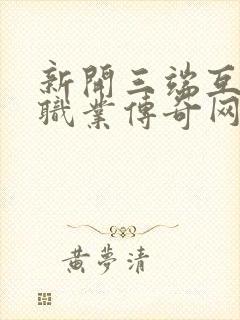 新開三端互
職業傳奇网
黄夢清